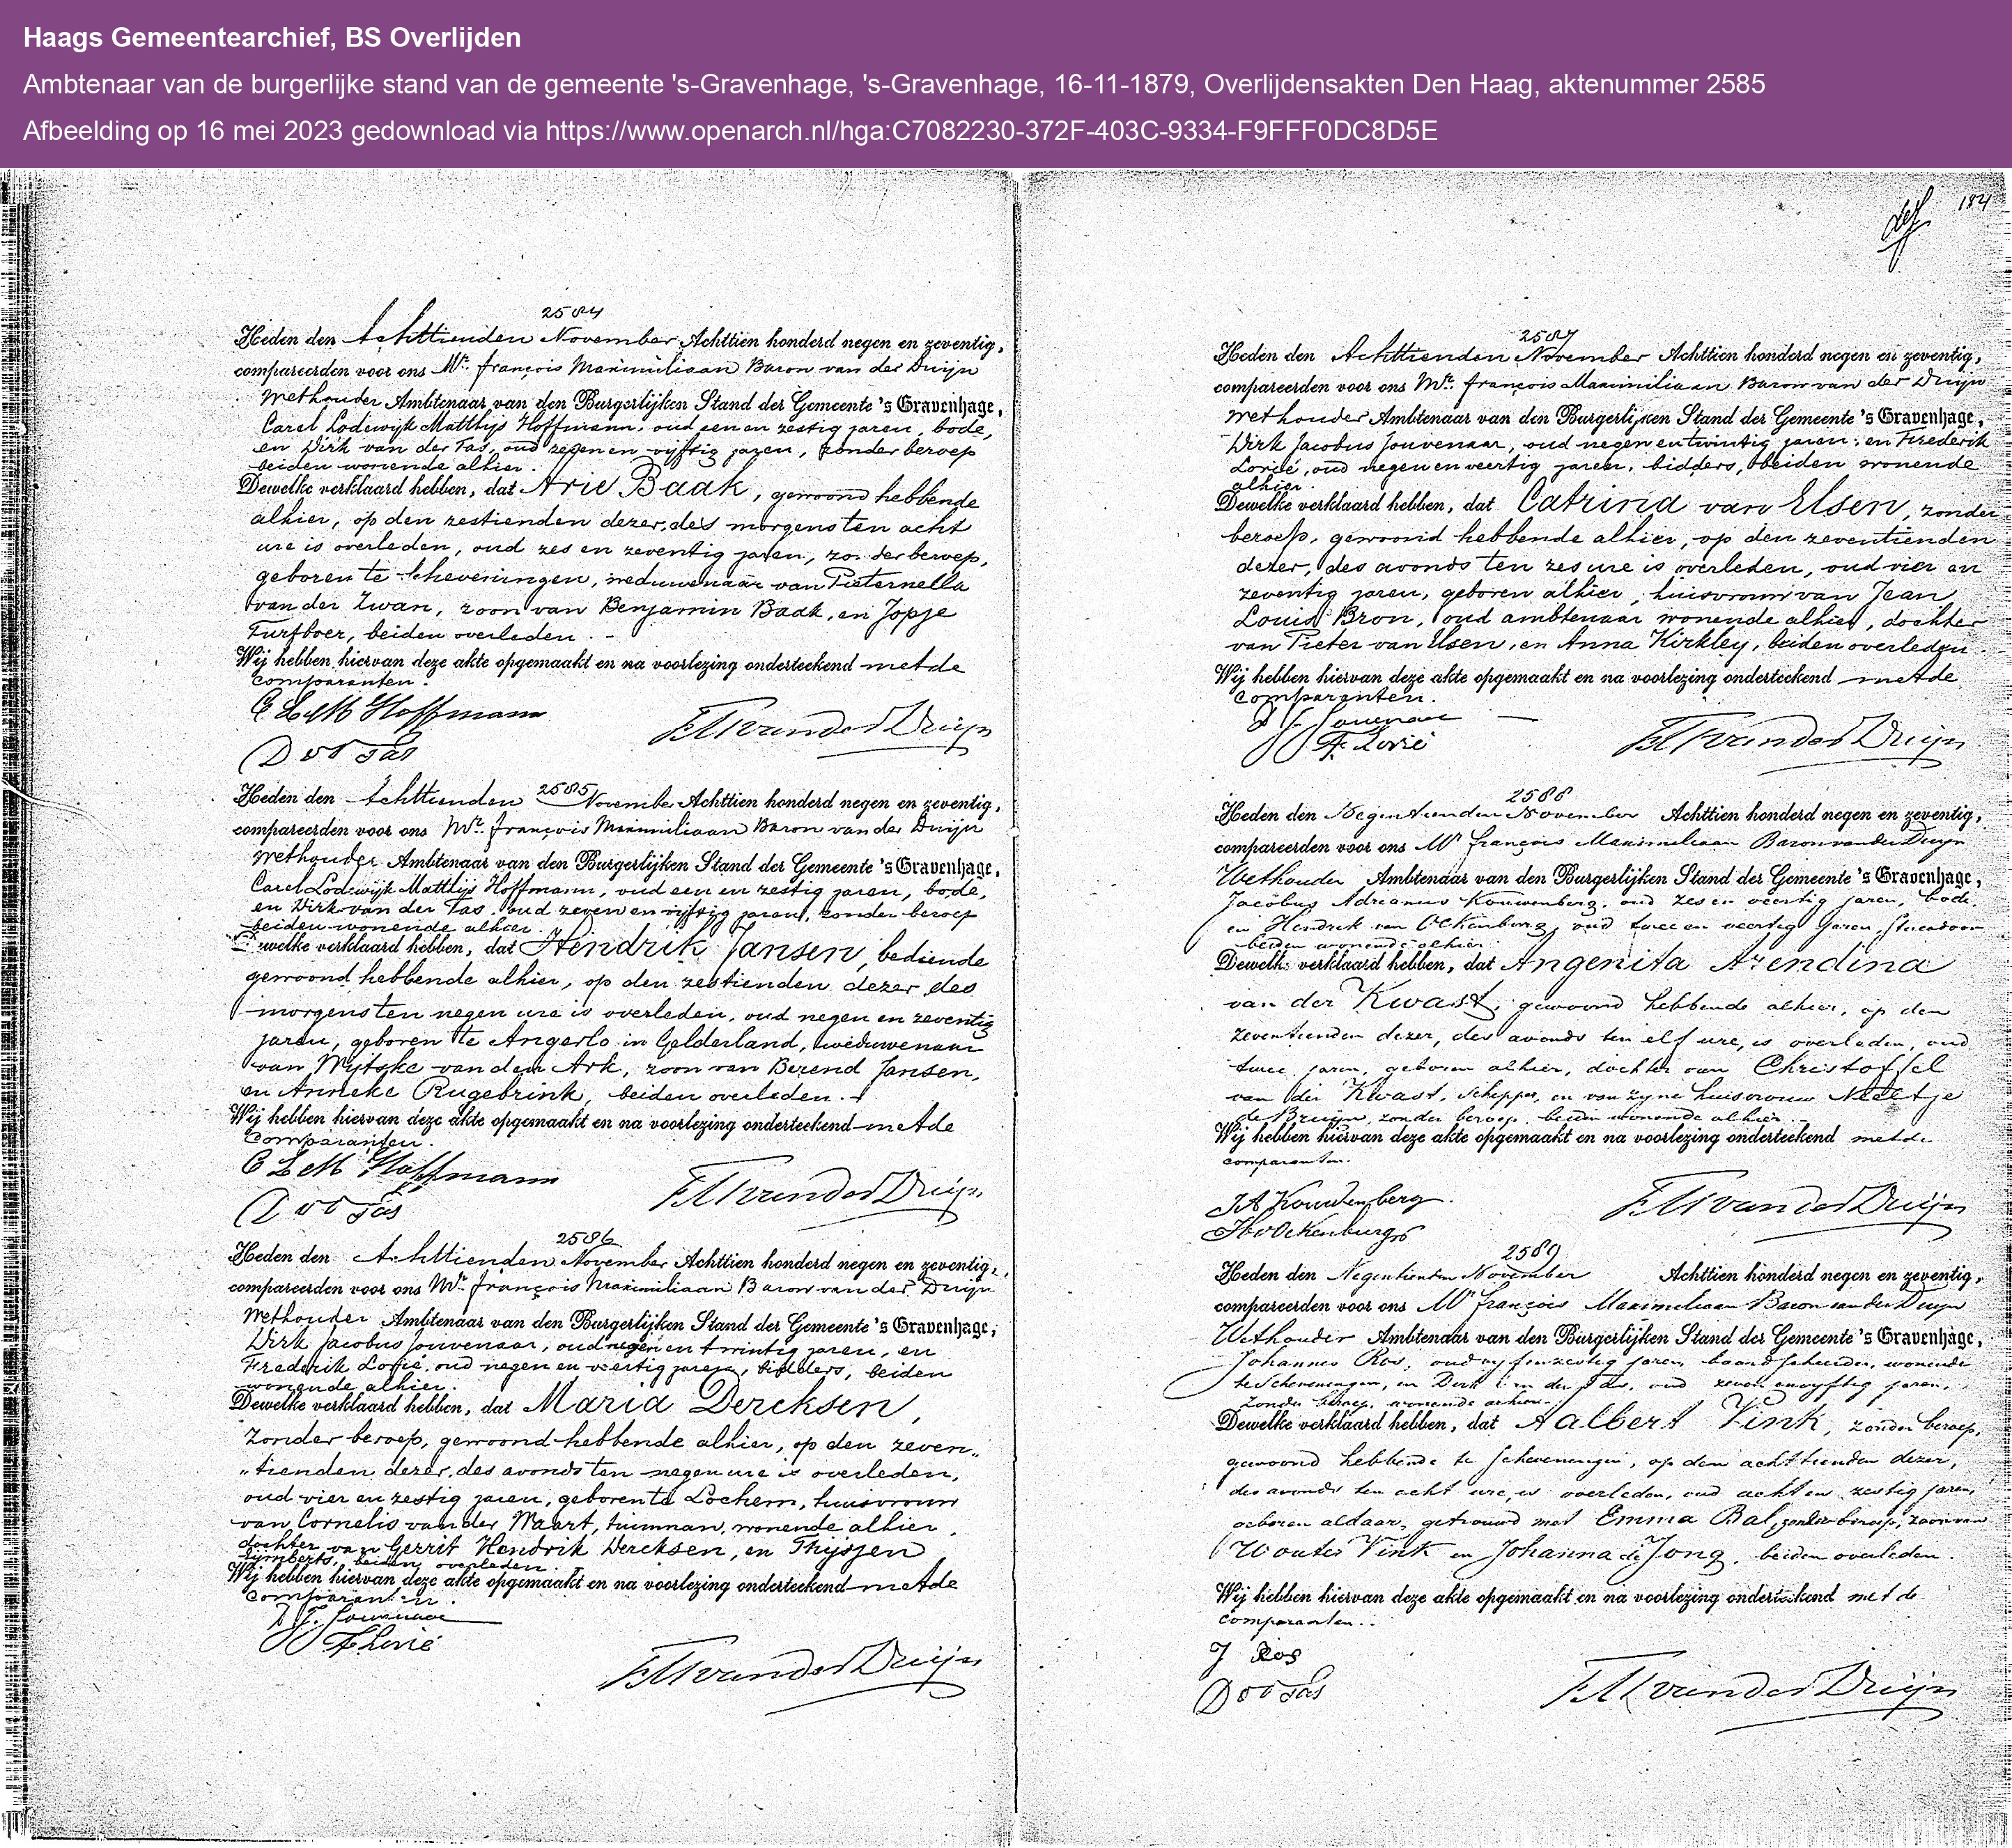 Haags Gemeentearchief, BS Overlijden
Ambtenaar van de burgerlijke stand van de gemeente 's-Gravenhage, 's-Gravenhage, 16-11-1879, Overlijdensakten Den Haag, aktenummer 2585
Afbeelding op 16 mei 2023 gedownload via https://www.openarch.nl/hga:C7082230-372F-403C-9334-F9FFF0DC8D5E
2584
Heden den Achttienden November Achttien honderd negen en zeventig,
compareerden voor ons Mr. François Maximiliaan Baron van der Duijn
Wethouder Ambtenaar van den Burgerlijken Stand der Gemeente 's Gravenhage,
Carel Lodewijk Matthijs Hoffmann, oud een en zestig jaren, bode,
en Dirk van der Tas, oud zeven en vijftig jaren, zonder beroep
beiden wonende alhier.
Dewelke verklaard hebben, dat Arie Baak, gewoond hebbende
alhier, op den zestienden dezer, des morgens ten acht
ure is overleden, oud zes en zeventig jaren, zonder beroep,
geboren te Scheveningen, weduwenaar van Pieternella
van der Zwan, zoon van Benjamin Baak, en Jopje
Turfboer, beiden overleden.
Wij hebben hiervan deze akte opgemaakt en na voorlezing onderteekend met de
comparanten.
C L M Hoffmann
D v d Tas
F M van der Duijn
2585
Heden den Achttienden November Achttien honderd negen en zeventig,
compareerden voor ons Mr. François Maximiliaan Baron van der Duijn
Wethouder Ambtenaar van den Burgerlijken Stand der Gemeente 's Gravenhage,
Carel Lodewijk Matthijs Hoffmann, oud een en zestig jaren, bode,
en Dirk van der Tas, oud zeven en vijftig jaren, zonder beroep
beiden wonende alhier.
Dewelke verklaard hebben, dat Hendrik Jansen, bediende
gewoond hebbende alhier, op den zestienden dezer des
morgens ten negen ure is overleden, oud negen en zeventig
jaren, geboren te Angerlo in Gelderland, weduwenaar
van Wijtske van den Ark, zoon van Berend Jansen,
en Anneke Rugebrink, beiden overleden.
Wij hebben hiervan deze akte opgemaakt en na voorlezing onderteekend met de
Comparanten.
C L M Hoffmann
D v d Tas
F M van der Duijn
2586
Heden den Achttienden November Achttien honderd negen en zeventig,
compareerden voor ons Mr. François Maximiliaan Baron van der Duijn
Wethouder Ambtenaar van den Burgerlijken Stand der Gemeente 's Gravenhage,
Dirk Jacobus Jouvenaar, oud negen en twintig jaren, en
Frederik Lorié, oud negen en veertig jaren, bidders, beiden
wonende alhier.
Dewelke verklaard hebben, dat Maria Dercksen,
zonder beroep, gewoond hebbende alhier, op den zeven„
„tienden dezer, des avonds ten negen ure is overleden,
oud vier en zestig jaren, geboren te Lochem, huisvrouw
van Cornelis van der Maart, tuinman, wonende alhier,
dochter van Gerrit Hendrik Dercksen, en Thijsjen
beiden overleden.
Wij hebben hiervan deze akte opgemaakt en na voorlezing onderteekend met de
comparanten.
D J. Jouvenaar
F Lorié
F M van der Duijn
184
2587
Heden den Achttienden November Achttien honderd negen en zeventig,
compareerden voor ons Mr. François Maximiliaan Baron van der Duijn
Wethouder Ambtenaar van den Burgerlijken Stand der Gemeente 's Gravenhage,
Dirk Jacobus Jouvenaar, oud negen en twintig jaren, en Frederik
Lorié, oud negen en veertig jaren, bidders, beiden wonende
alhier.
Dewelke verklaard hebben, dat Catrina van Elsen, zonder
beroep, gewoond hebbende alhier, op den zeventienden
dezer, des avonds ten zes ure is overleden, oud vier en
zeventig jaren, geboren alhier, huisvrouw van Jean
Louis Bron, oud ambtenaar wonende alhier, dochter
van Pieter van Elsen, en Anna Kirkley, beiden overleden.
Wij hebben hiervan deze akte opgemaakt en na voorlezing onderteekend met de
comparanten.
D J Jouvenaar
F. Lorié
F M van der Duijn
2588
Heden den Negentienden November Achttien honderd negen en zeventig,
compareerden voor ons Mr François Maximiliaan Baron van der Duijn
Wethouder Ambtenaar van den Burgerlijken Stand der Gemeente 's Gravenhage,
Jacobus Adrianus Kouwenberg, oud zes en veertig jaren, bode,
en Hendrik van Ockenburg, oud twee en veertig jaren,
beiden wonende alhier
Dewelke verklaard hebben, dat Angenita Arendina
van der Kwast, gewoond hebbende alhier, op den
zeventienden dezer, des avonds ten elf ure, is overleden, oud
twee jaren, geboren alhier, dochter van Christoffel
van der Kwast, schipper, en van zyne huisvrouw Neeltje
de Bruijn, zonder beroep, beiden wonende alhier.
Wij hebben hiervan deze akte opgemaakt en na voorlezing onderteekend met de
comparanten.
J A Kouwenberg
H v Ockenburg
F M van der Duijn
2589
Heden den Negentienden November Achttien honderd negen en zeventig,
compareerden voor ons Mr François Maximiliaan Baron van der Duijn
Wethouder Ambtenaar van den Burgerlijken Stand der Gemeente 's Gravenhage,
Johannes Ros, oud vyf en zestig jaren, wonende
te Scheveningen, en Dirk van der Tas, oud zeven en vyftig jaren,
zonder beroep, wonende alhier.
Dewelke verklaard hebben, dat Aalbert Vink, zonder beroep,
gewoond hebbende te Scheveningen, op den achttienden dezer,
des avonds ten acht ure, is overleden, oud acht en zestig jaren,
geboren aldaar, getrouwd met Emma Bal, zonder beroep, zoon van
Wouter Vink en Johanna de Jong, beiden overleden.
Wij hebben hiervan deze akte opgemaakt en na voorlezing onderteekend met de
Comparanten.
J Ros
D v d Tas
F M van der Duijn